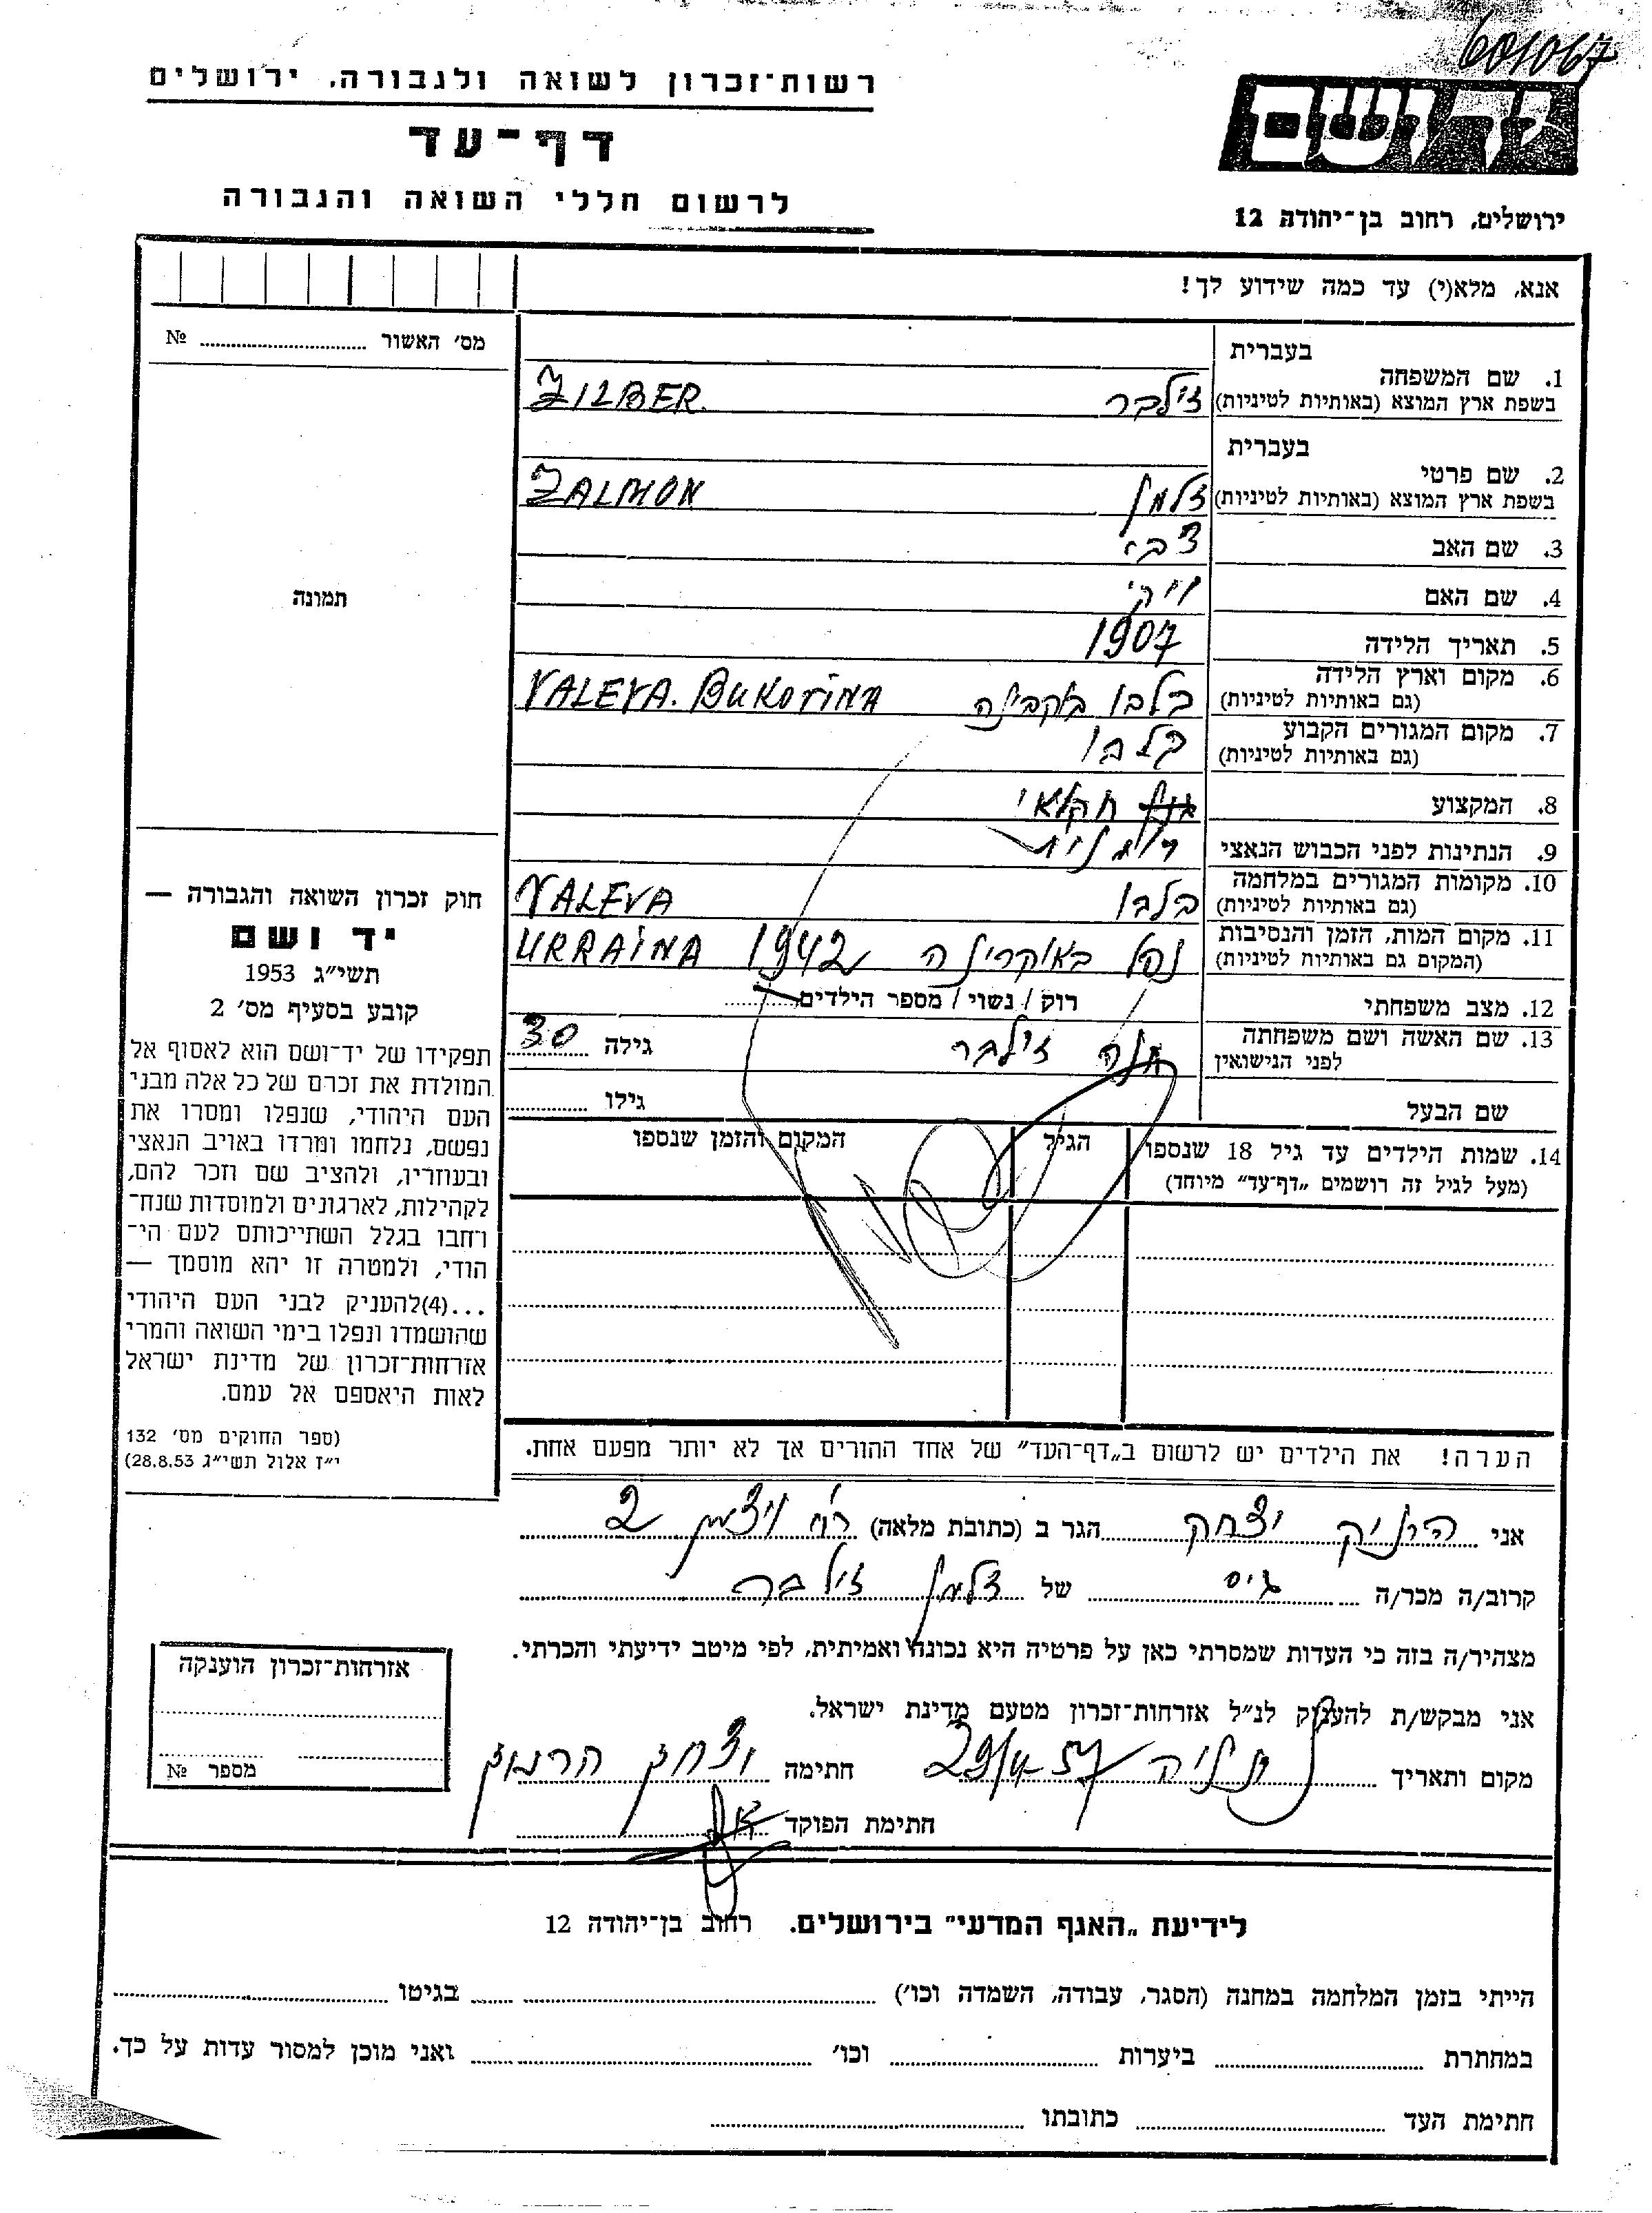 601067
רשות־זכרון לשואה ולגבורה, ירושלים
דף־עד
לרשום חללי השואה והגבורה
יד ושם
ירושלים, רחוב בן־יהודה 12
אנא, מלא(י) עד כמה שידוע לך!
מס׳ האשור № 
בעברית
1. שם המשפחה
בשפת ארץ המוצא (באותיות לטיניות) זילבר ZILBER
בעברית
2. שם פרטי
בשפת ארץ המוצא (באותיות לטיניות) זלמן ZALMON
3. שם האב צבי
4. שם האם
5. תאריך הלידה 1907
6. מקום וארץ הלידה
(גם באותיות לטיניות) VALEVA. BUKOVINA
7. מקום המגורים הקבוע
(גם באותיות לטיניות)
8. המקצוע חקלאי
9. הנתינות לפני הכבוש הנאצי רומנית
10. מקומות המגורים במלחמה
(גם באותיות לטיניות) VALEVA
11. מקום המות, הזמן והנסיבות
(המקום גם באותיות לטיניות) נפל באוקרינה 1942 UKRAINA
12. מצב משפחתי רוק / נשוי / מספר הילדים
13. שם האשה ושם משפחתה
לפני הנישואין חנה זילבר גילה 30
שם הבעל גילו
14. שמות הילדים עד גיל 18 שנספו
(מעל לגיל זה רושמים „דף־עד" מיוחד)
הגיל
המקום והזמן שנספו
תמונה
חוק זכרון השואה והגבורה —
יד ושם
תשי״ג 1953
קובע בסעיף מס׳ 2
תפקידו של יד־ושם הוא לאסוף אל
המולדת את זכרם של כל אלה מבני
העם היהודי, שנפלו ומסרו את
נפשם, נלחמו ומרדו באויב הנאצי
ובעוזריו, ולהציב שם וזכר להם,
לקהילות, לארגונים ולמוסדות שנח־
רבו בגלל השתייכותם לעם הי־
הודי, ולמטרה זו יהא מוסמך —
...(4)להעניק לבני העם היהודי
שהושמדו ונפלו בימי השואה והמרי
אזרחות־זכרון של מדינת ישראל
לאות היאספם אל עמם.
(ספר החוקים מס׳ 132
י״ז אלול תשי״ג 28.8.53)
הערה! את הילדים יש לרשום ב„דף־העד" של אחד ההורים אך לא יותר מפעם אחת.
אני הרניק יצחק הגר ב (כתובת מלאה) רח׳ ויצמן 2
קרוב/ה מכר/ה גיס של זלמן זילבר
מצהיר/ה בזה כי העדות שמסרתי כאן על פרטיה היא נכונה ואמיתית, לפי מיטב ידיעתי והכרתי.
אני מבקש/ת להעניק לנ״ל אזרחות־זכרון מטעם מדינת ישראל.
מקום ותאריך נתניה 29/4 57 חתימה יצחק הרניק
חתימת הפוקד
אזרחות־זכרון הוענקה
מספר №
לידיעת „האגף המדעי" בירושלים. רחוב בן־יהודה 12
הייתי בזמן המלחמה במחנה (הסגר, עבודה, השמדה וכו׳) בגיטו
במחתרת ביערות וכו׳ ואני מוכן למסור עדות על כך.
חתימת העד כתובתו